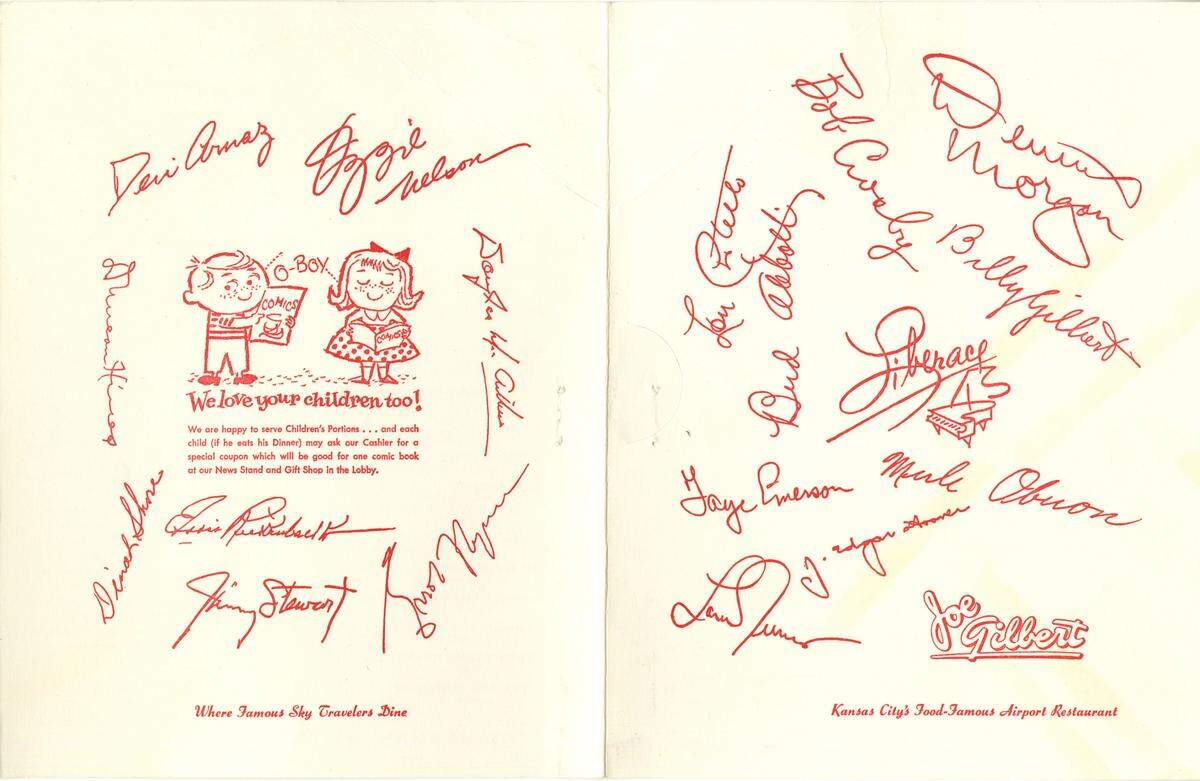 Desi Arnaz
Ozzie
Nelson
O-BOY
COMICS
COMICS
Duncan Hines
We love your children too!
We are happy to serve Children's Portions . . . and each
child (if he eats his Dinner) may ask our Cashier for a
special coupon which will be good for one comic book
at our News Stand and Gift Shop in the Lobby.
Dinah Shore
Jimmy Stewart
Errol Flynn
Where Famous Sky Travelers Dine
Dennis
Morgan
Bob Crosby
Billy Gilbert
Lou Costello
&
Bud Abbott
Liberace
Faye Emerson
Merle Oberon
J. Edgar Hoover
Joe
Gilbert
Kansas City's Food-Famous Airport Restaurant